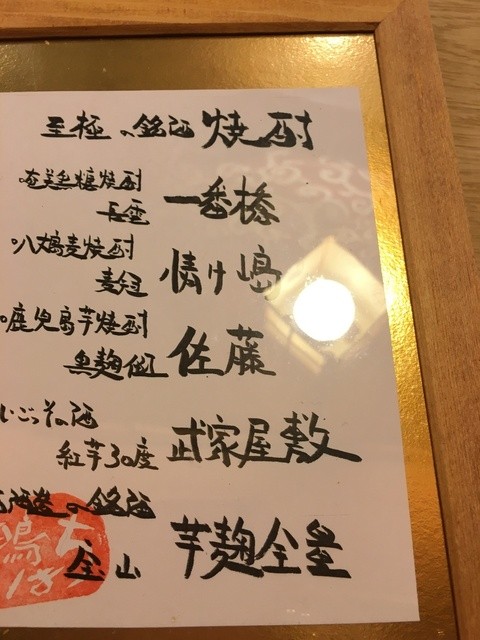 至極の銘酒 焼酎
奄美黒糖焼酎
長雲 一番橋
八丈島麦焼酎
麦冠 情け嶋
鹿児島芋焼酎
黒麹仕込 佐藤
いごっその酒
紅芋30度 武家屋敷
の銘酒
宝山 芋麹全量